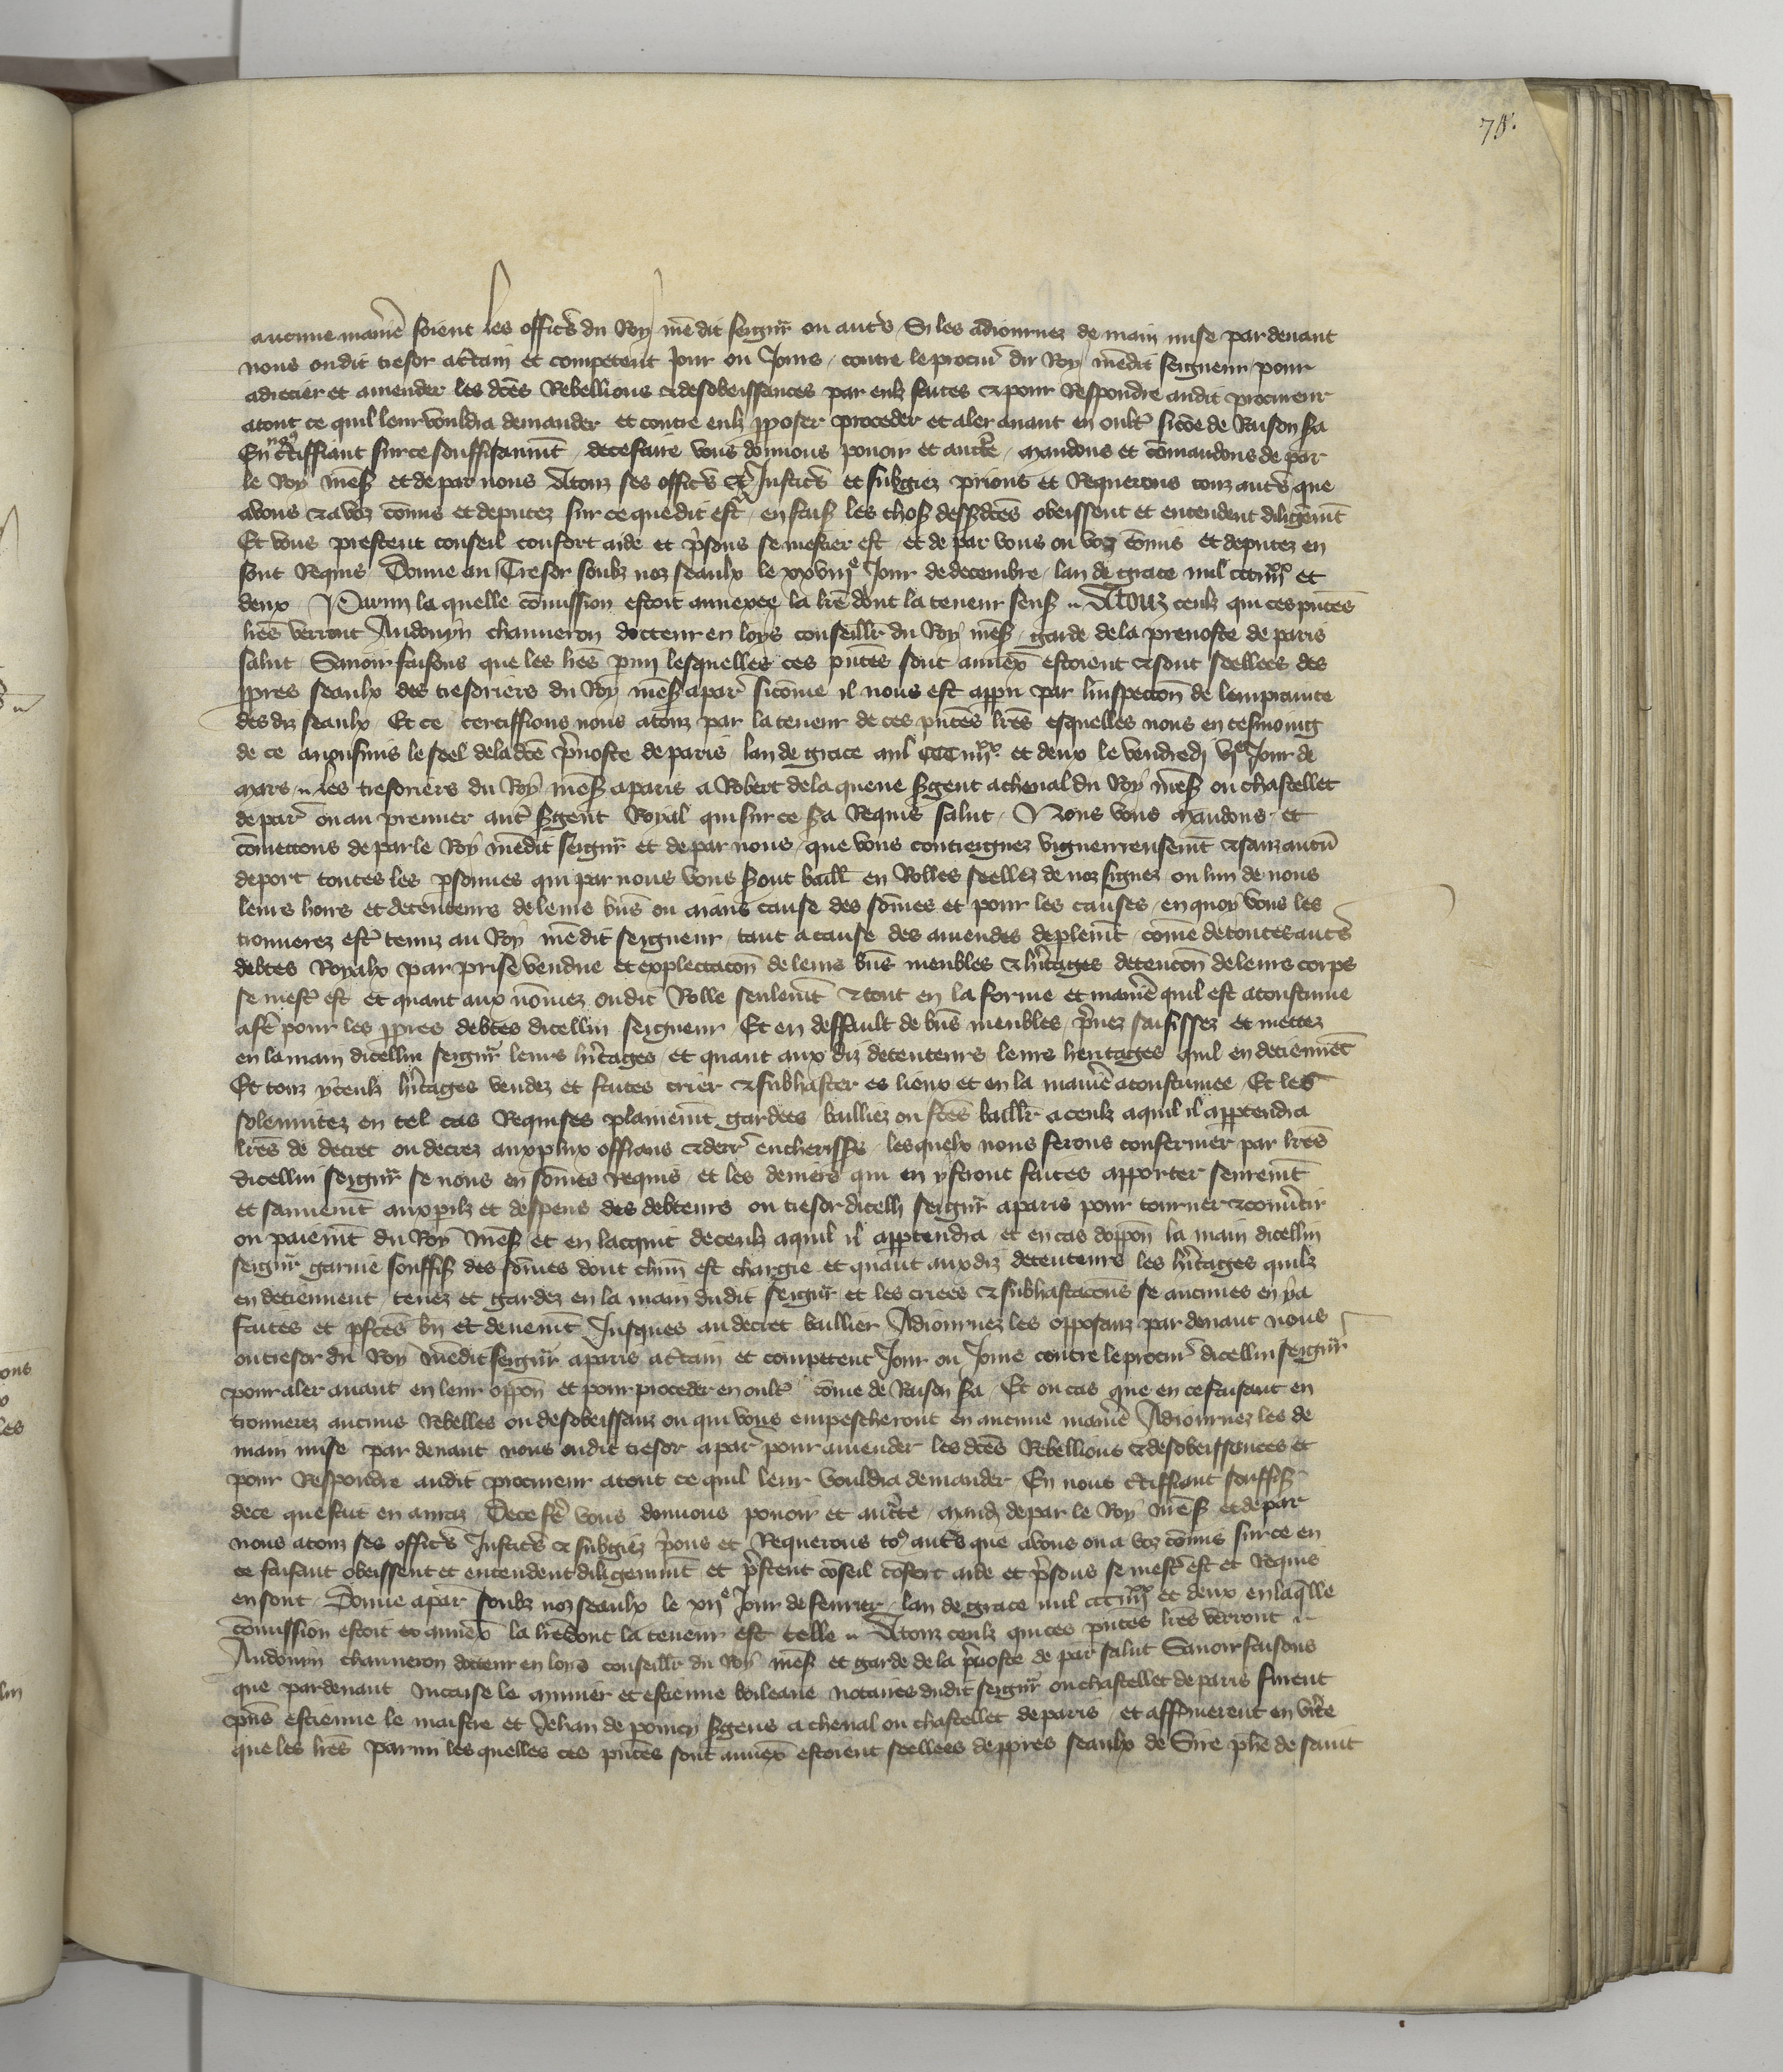 78.
aucune maniē soient les officrs du Roy mēdit seigneur ou autrs Si les adiournez de main mise par deuant
nous oudit tresor a certain et competent Jour ou Jours contre le procur du Roy mēdit seigneur pour
adrecier et amender les dctes Rebellions et desobeissances par eulx faites et pour Respondre audit procureur
atout ce quil leur vouldra demander et contre eulx proposer proceder et aler auant en oultr sicōe de Raison sera
En nous certiffiant surce souffisanmt de ce faire vous donnons pouoir et auctte mandons et cōmandons de par
le Roy mess et de par nous Atouz ses officrs et Justicrs et subgiez prions et Requerons touz autrs que
avous et avoz cōmis et deputez sur ce que dit est en faisant les choses dessdctes obeissent et entendent diligēmt
Et vous prestent conseil confort aide et prisons se mestier est et de par vous ou voz cōmis et deputez en
sont Requis Donne au Tresor soubz noz seaulx le xxviije Jour de decembre lan de grace mil ccc iiijxx et
deux Parmi la quelle cōmission estoit annexee la lrē dont la teneur sens Atouz ceulx qui ces pntes
lrēs verront Audouyn chauueron docteur en loys conseillr du Roy mess garde de la preuoste de paris
salut Sauoir faisons que les lrēs pmy lesquelles ces pntes sont annex estoient et sont seellees des
ppres seaulx des tresoriers du Roy mess apar sicōme il nous est apparu par linspeccon de lemprainte
des diz seaulx Et ce certiffions nous atouz par la teneur de ces pntes lrēs esquelles nous en tesmoing
de ce auons mis le seel de la dcte preuoste de paris lan de grace mil CCC iiijxx et deux le vendredi vje Jour de
mars les tresoriers du Roy mess aparis a Robert de la queue sergent acheual du Roy mess ou chastellet
de par ou au premier autr sergent Royal qui sur ce sera Requis salut Nous vous mandons et
cōmettons de par le Roy mēdit seigneur et de par nous que vous contreignez viguereusemt et sanz aucū
deport toutes les psonnes qui par nous vous seront baill en Rolles seellez de noz signez ou lun de nous
leurs hoirs et detenteurs de leurs biēs ou aians cause des sōmes et pour les causes en quoy vous les
trouuerez estr tenuz au Roy mēdit seigneur tant acause des amendes de plemt cōme de toutes autrs
debtes Royalx par prise vendue et explectacon de leurs biēs meubles et hritages detencon de leurs corps
se mestr est et quant aux nōmez oudit Rolle seulemt et tout en la forme et maniē quil est acoustume
afr pour les ppres debtes dicellui seigneur Et en deffault de biēs meubles prenez saisissez et mettez
en la main dicellui seigneur leurs hritages et quant aux diz detenteurs leurs heritages quil en detiennēt
Et touz yceulx hritages vendez et faites crier et subhaster es lieux et en la maniē acoustumee Et les
solennitez en tel cas Requises plainemt gardees bailliez ou fctes baillr aceulx aquil il apptendra
lrēs de decret ou decrez aux plux offrans et derr encherisss lesquelx nous ferons confermer par lrēs
dicellui seigneur se nous en sōmes requis et les deniers qui en ystront faites apporter seuremt
et sauuemt aux pilz et despens des debteurs ou tresor dicelli seigneur aparis pour tourner et conutir
ou paiemt du Roy mess et en lacquit de ceulx aquil il apptendra et en cas doppon la main dicellui
seigneur garnie souffis des sōmes dont chun est chargie et quant aux diz detenteurs les hritages quilz
en detiennent tenez et gardez en la main dudit seigneur et les criees et subhastacons se aucunes en ya
faites et pfctes bn et deuemt Jusques au decret baillier Adiournez les opposanz par deuant nous
ou tresor du Roy mēdit seigneur aparis a certain et competent Jour ou Jours contre le procur dicellui seigneur
pour aler auant en leur oppon et pour proceder en oultr cōme de Raison sera Et ou cas que en ce faisant en
trouuerez aucuns Rebelles ou desobeissanz ou qui vous empescheront en aucune maniē Adiournez les de
main mise par deuant nous oudit tresor apar pour amender les dctes Rebellions et desobeissances et
pour Respondre audit procureur atout ce quil leur vouldra demander En nous certiffiant souffis
de ce que fait en aurez De ce fr vous donnons pouoir et auctte mand de par le Roy mess et de par
nous atouz ses officrs Justicrs et subgiez prions et Requerons to9 autrs que avous ou a voz cōmis sur ce en
ce faisant obeissent et entendent diligenmt et prestent cōseil cōfort aide et prisons se mestr est et Requis
en sont Donne apar soubz noz seaulx le xije Jour de feurier lan de grace mil ccc iiijxx et deux en laqlle
cōmission estoit annex la lrē dont la teneur est telle Atouz ceulx qui ces pntes lrēs verront
Audouyn chauueron docteur en loys conseillr du Roy mess et garde de la preuoste de par salut Sauoir faisons
que par deuant Nicaise le munier et estienne boileaue notaires dudit seigneur ou chastellet de paris furent
pns estienne le maistre et Jehan de poincy sergens a cheual ou chastellet de paris et affermerent en vrte
que les lrēs parmi les quelles ces pntes sont annex estoient seellees de ppres seaulx de Sire phe de saint